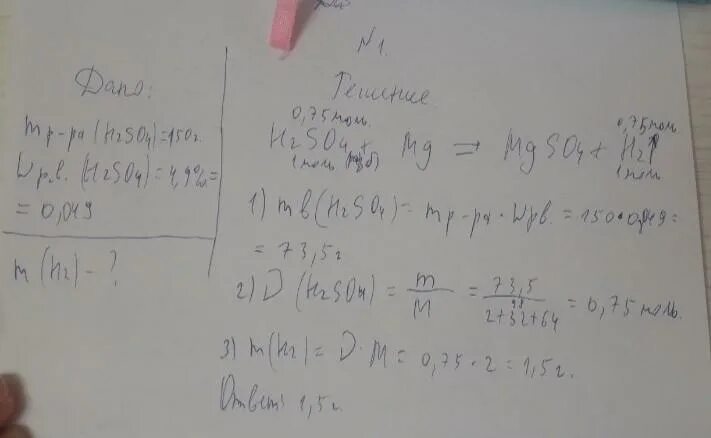 N1.
Дано:
mр-ра (H2SO4)=150г.
Wр.в. (H2SO4)=4,9%=
= 0,049
m (H2) - ?
Решение
0,75 моль. 0,75 моль
H2SO4 + Mg = MgSO4 + H2↑
1 моль (разб) 1 моль
1) mв (H2SO4) = mр-ра · Wрв. = 150·0,049=
= 73,5г
2) D (H2SO4) = m/M = 73,5/2+32+64 98 = 0,75 моль.
3) m(H2) = D·M = 0,75·2 = 1,5г.
Ответ: 1,5г.